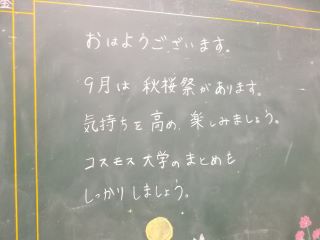 おはようございます。
9月は 秋桜祭があります。
気持ちを高め、楽しみましょう。
コスモス大学のまとめも
しっかりしましょう。